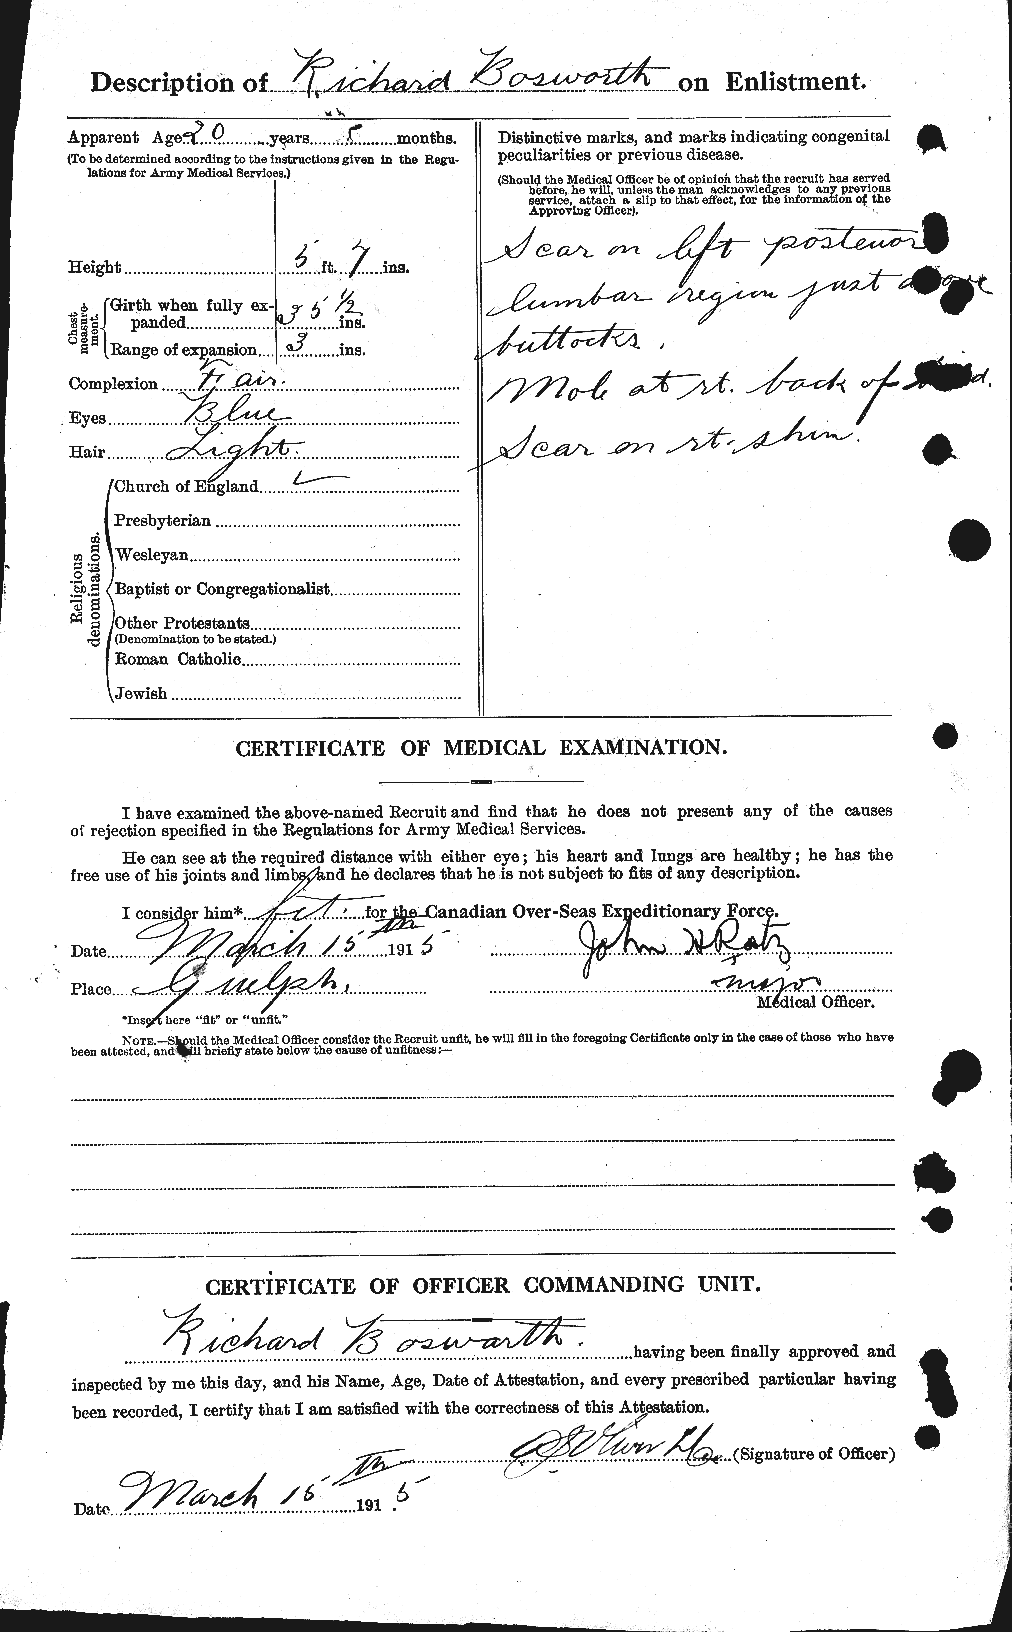 Description of Richard Bosworth on Enlistment.
Apparent Age 20 years 5 months.
(To be determined according to the instructions given in the Regu-
lations for Army Medical Services.)
Height 5 ft. 7 ins.
Chest measure-ment.
Girth when fully ex-
panded 35 1/2 ins.
Range of expansion 3 ins.
Complexion Fair.
Eyes Blue
Hair Light.
Religious denominations.
Church of England ✓
Presbyterian
Wesleyan
Baptist or Congregationalist
Other Protestants
(Denomination to be stated.)
Roman Catholic
Jewish
Distinctive marks, and marks indicating congenital
peculiarities or previous disease.
(Should the Medical Officer be of opinion that the recruit has served
before, he will, unless the man acknowledges to any previous
service, attach a slip to that effect, for the information of the
Approving Officer).
Scar on left posterior
lumbar region just above
buttocks.
Mole at rt. back of
Scar on rt. shin.
CERTIFICATE OF MEDICAL EXAMINATION.
I have examined the above-named Recruit and find that he does not present any of the causes
of rejection specified in the Regulations for Army Medical Services.
He can see at the required distance with either eye; his heart and lungs are healthy; he has the
free use of his joints and limbs, and he declares that he is not subject to fits of any description.
I consider him* fit. for the Canadian Over-Seas Expeditionary Force.
Date March 15th 1915 John H Ratz
Place Guelph. Major
Medical Officer.
*Insert here "fit" or "unfit."
NOTE.—Should the Medical Officer consider the Recruit unfit, he will fill in the foregoing Certificate only in the case of those who have
been attested, and will briefly state below the cause of unfitness:—
CERTIFICATE OF OFFICER COMMANDING UNIT.
Richard Bosworth. having been finally approved and
inspected by me this day, and his Name, Age, Date of Attestation, and every prescribed particular having
been recorded, I certify that I am satisfied with the correctness of this Attestation.
(Signature of Officer)
Date March 15th 1915